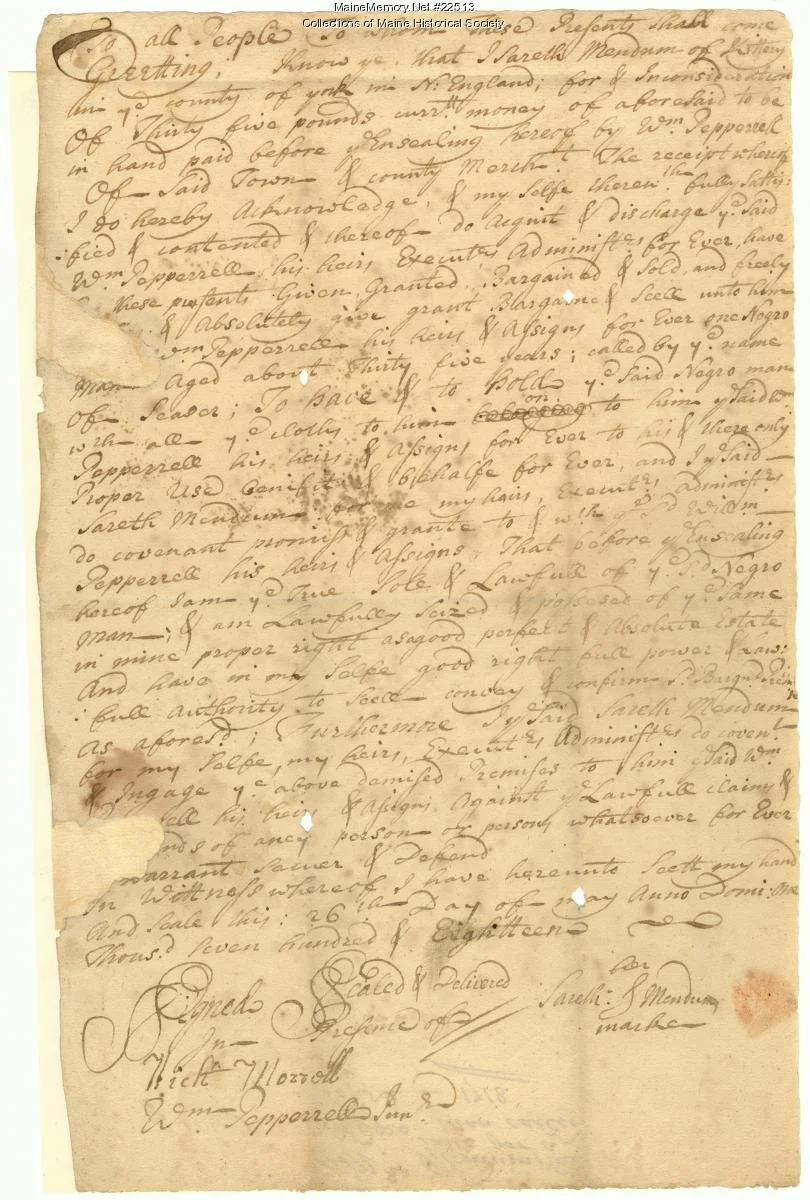 MaineMemory.Net #22513
Collections of Maine Historical Society
To all People to whom these Presents shall come
Greetting; Know ye, that I Sareth Mendum of Kittery
in ye county of york in N: England; for & Inconsideration
Of Thirty five pounds currtt money of aboresaid to be
in hand paid before ye Ensealing hereof by Wm Pepperrell
Of Said Town & county Mercht The receipt whereof
I do hereby Acknowledge, & my selfe therewth fully Sattis:
:fied & contented & thereof do Acquit & discharge ye Said
Wm Pepperrell his heirs Executrs Administrs for Ever, have
these presents Given, Granted, Bargained & Sold, and freely
& Absolutely give grant Blargaine & Sell unto him
Wm Pepperrell his heirs & Assigns for Ever one Negro
man Aged about Thirty five years; called by ye name
Of Seaser; To have & to hold ye Said Negro man
wth all ye cloths to him on to him ye Said Wm
Pepperrell his heirs & Assigns for Ever to his & there only
Proper Use benifit & behalfe for Ever, and I ye Said
Sareth Mendum for me my hairs, Executrs Administrs
do covenant promiss & grante to & wth ye sd Willm
Pepperrell his heirs & Assigns, That before ye Ensealing
hereof I am ye True Sole & Lawfull of ye Sd Negro
Man; & am Lawfully Seized & possesed of ye Same
in mine proper right as a good perfect & Absolute Estate
And have in my Selfe good right full power & Law:
:full Authority to Sell convey & confirm sd Bargnd
As aforesd; Furthermore I ye Said Sareth Mendum
for my Selfe, my heirs, Executrs Administrs do covent
& Ingage ye above demised Premises to him ye Said Wm
ell his heirs & Asigns Against ye Lawfull claims &
nds of aney person or persons whatsoever for Ever
warrant Secuer & Defend
In Wittness whereof I have hereunto Sett my hand
And Seale this: 26th Day of may Anno Domi: One
Thousd Seven hundred & Eighteen
Signed Sealed & Delivered
In Presence of
her
Sareth: S Mendum
marke
Nich Morrell
Wm Pepperrell Junr